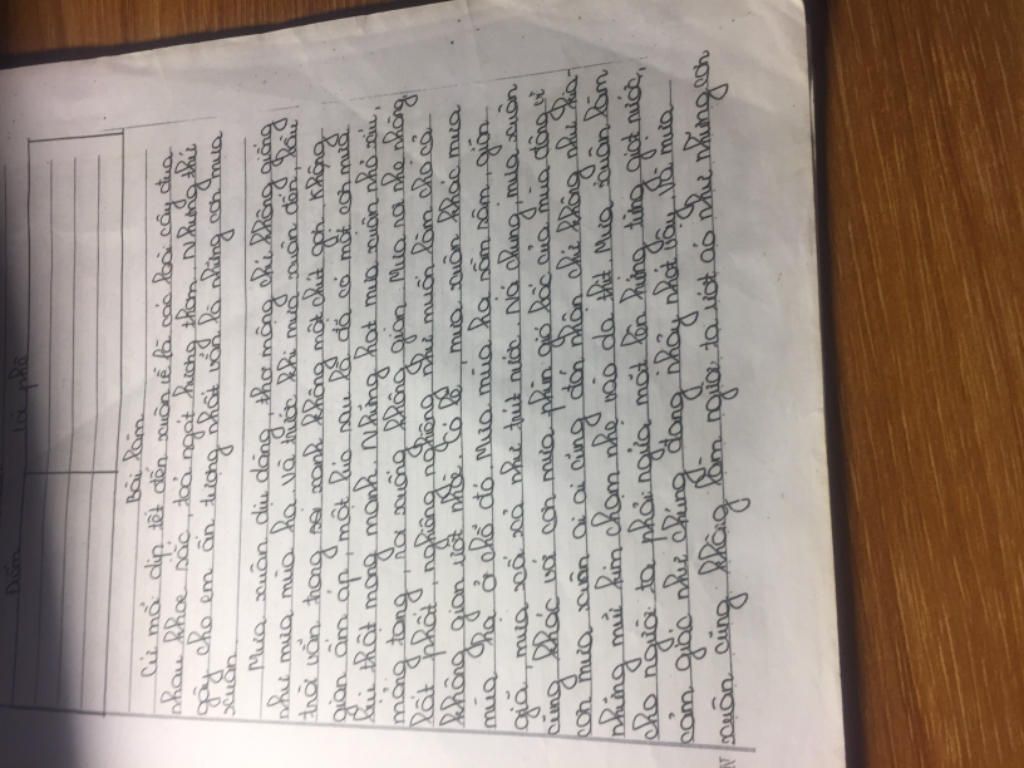 Điểm lời phê
Bài làm
Cứ mỗi dịp tết đến xuân về là các loài cây đua
nhau khoe sắc, toả ngát hương thơm. Nhưng thứ
gây cho em ấn tượng nhất vẫn là những cơn mưa
xuân.
Mưa xuân dịu dàng, thơ mộng chứ không giống
như mưa mùa hạ. Và trước khi mưa xuân đến, bầu
trời vẫn trong xanh không một chút gợn. Không
gian ấm áp, một lúc sau là đã có một cơn mưa
bụi thật mong manh. Những hạt mưa xuân nhỏ xíu,
mỏng tang, rơi xuống không gian. Mưa rơi nhè nhẹ
lất phất, nghiêng nghiêng như muốn làm cho cả
không gian ướt nhè. Có lẽ, mưa xuân khác mưa
mùa hạ ở chỗ đó. Mưa mùa hạ ầm ầm, giận
giữ, mưa xối xả như trút nước. Nó chung, mưa xuân
cũng khác với cơn mưa phùn gió bấc của mùa đông vì
cơn mưa xuân ai ai cũng đón nhận chứ không như ho-
những mũ kín chạm nhẹ vào da thịt. Mưa xuân làm
cho người ta phải ngửa mặt lên hứng từng giọt nước,
cảm giác như chúng đang nhảy nhót vậy. Và mưa
xuân cũng không làm người ta ướt áo như những cơn